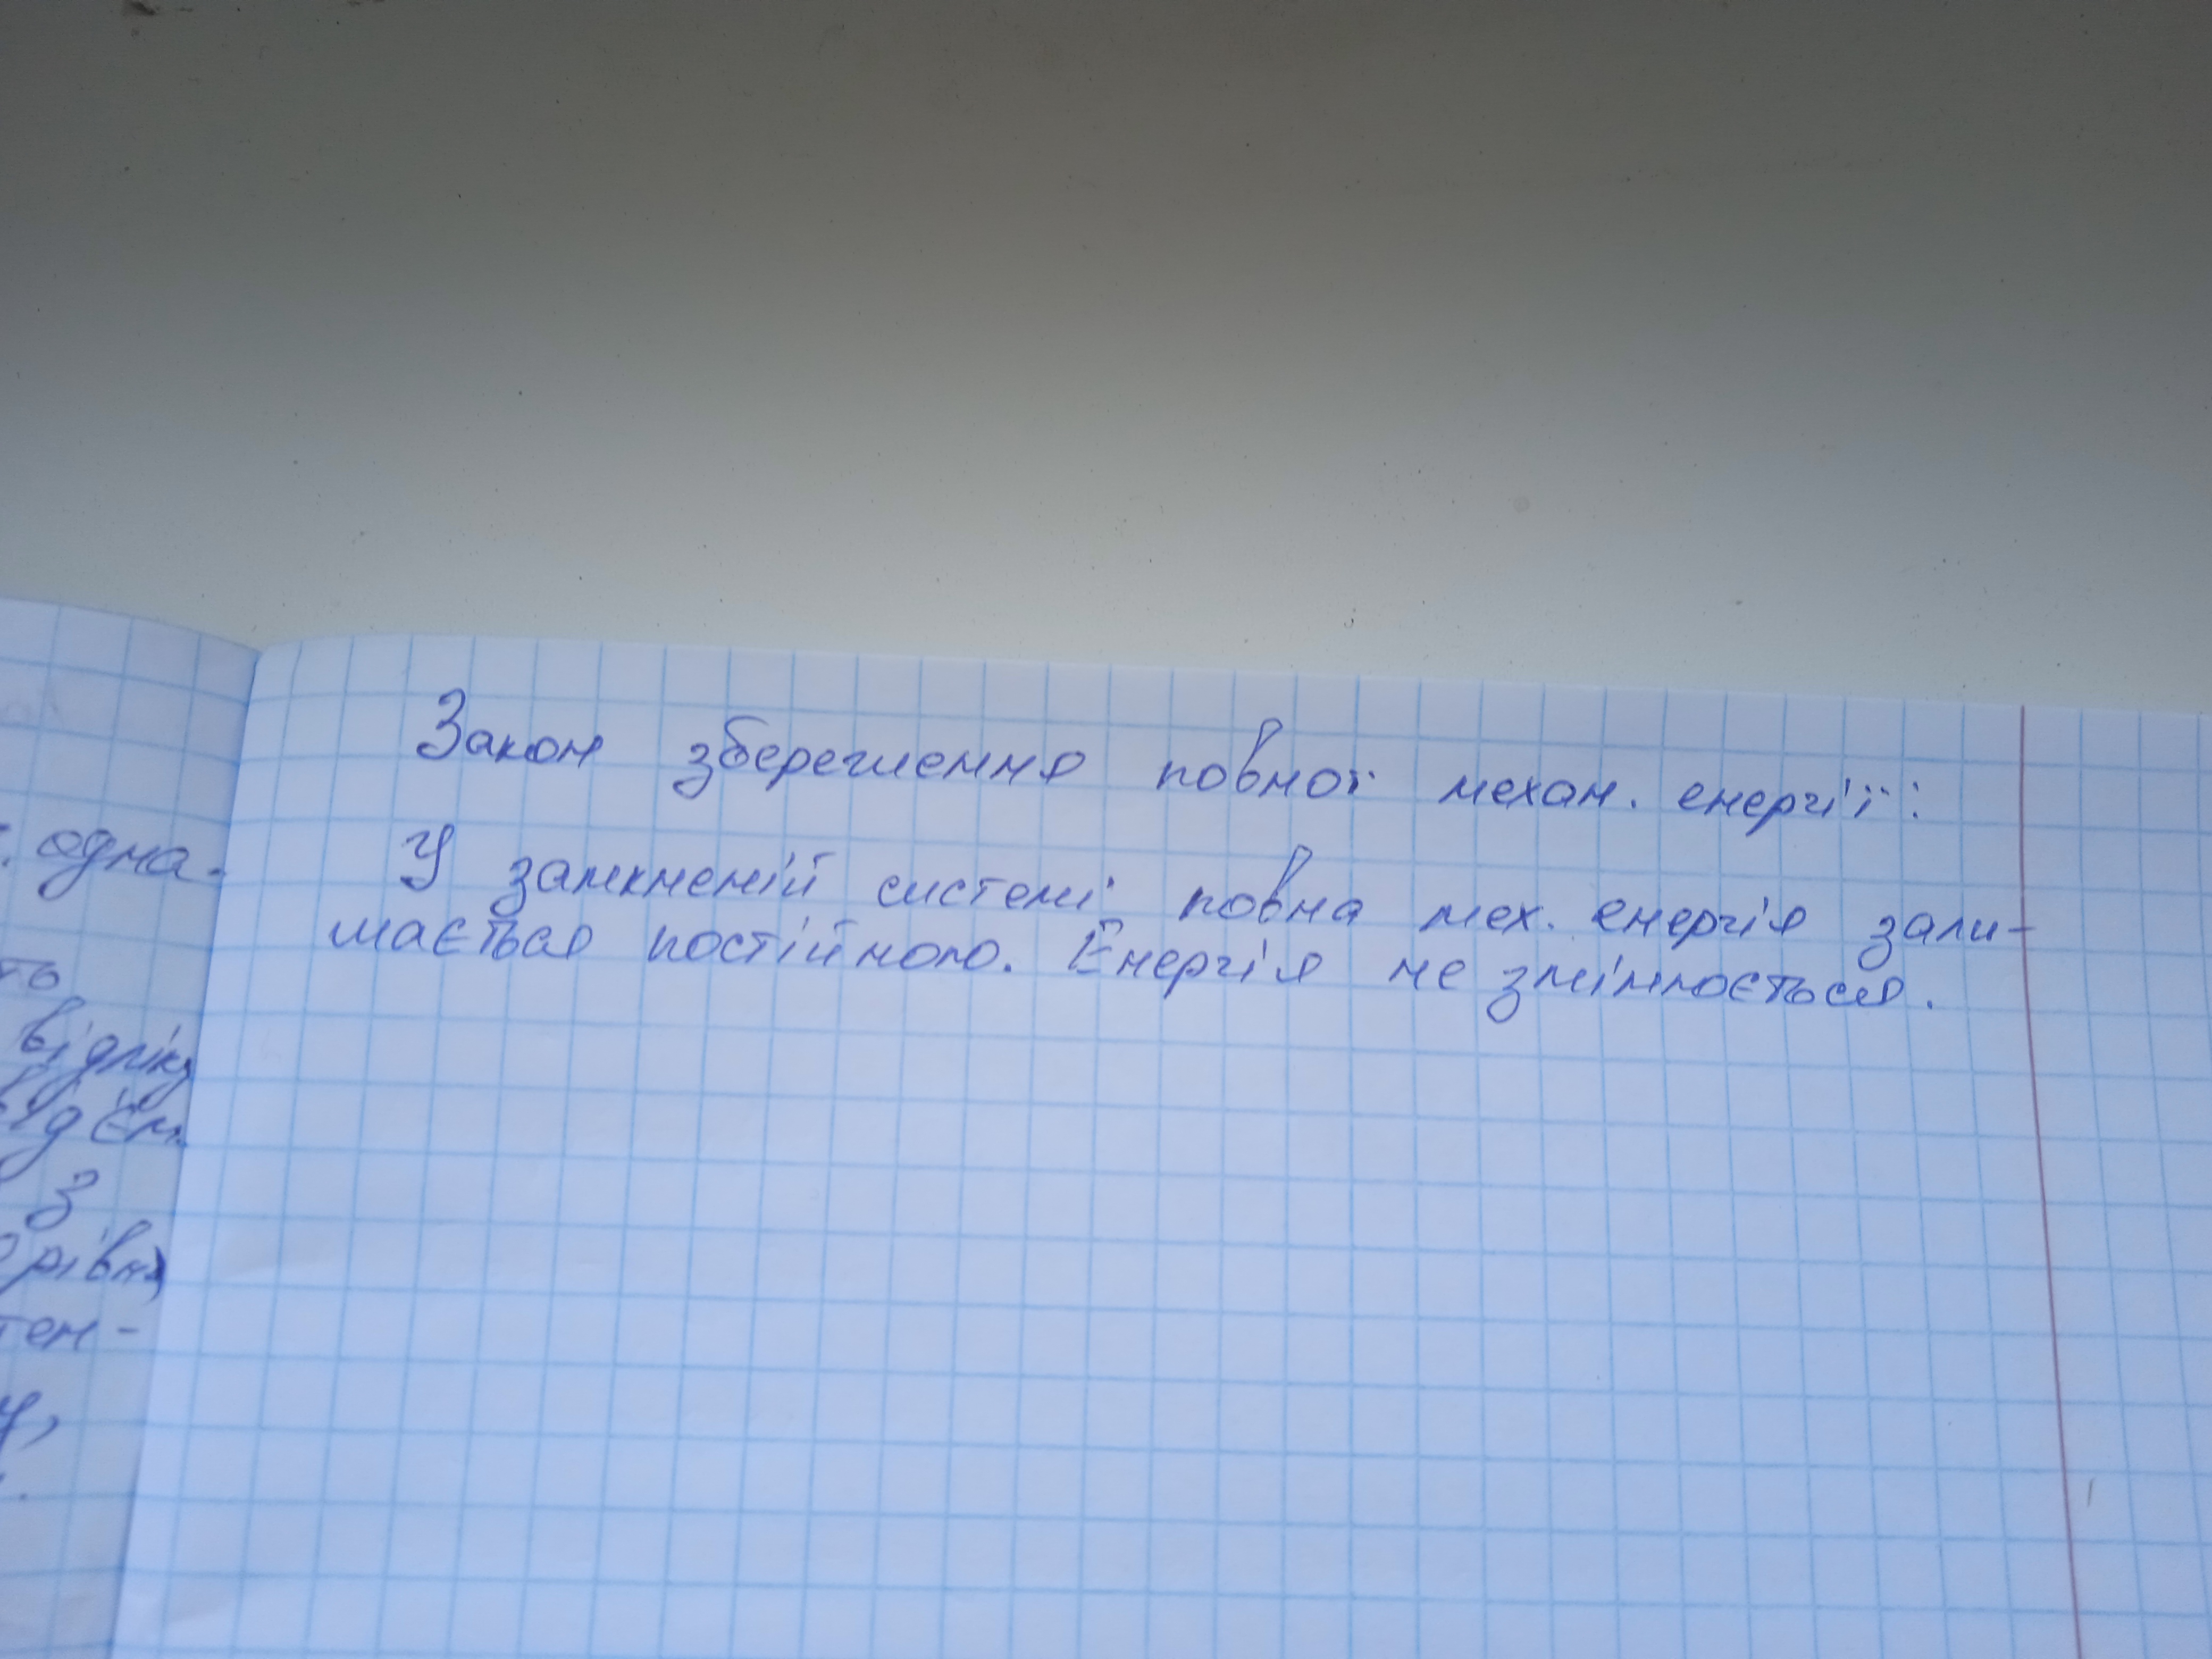 Закон збереження повної механ. енергії:
У замкненій системі повна мех. енергія зали-
шається постійною. Енергія не змінюється.
. одна-
ть
відліку
від'єм.
З
рівня
тен-